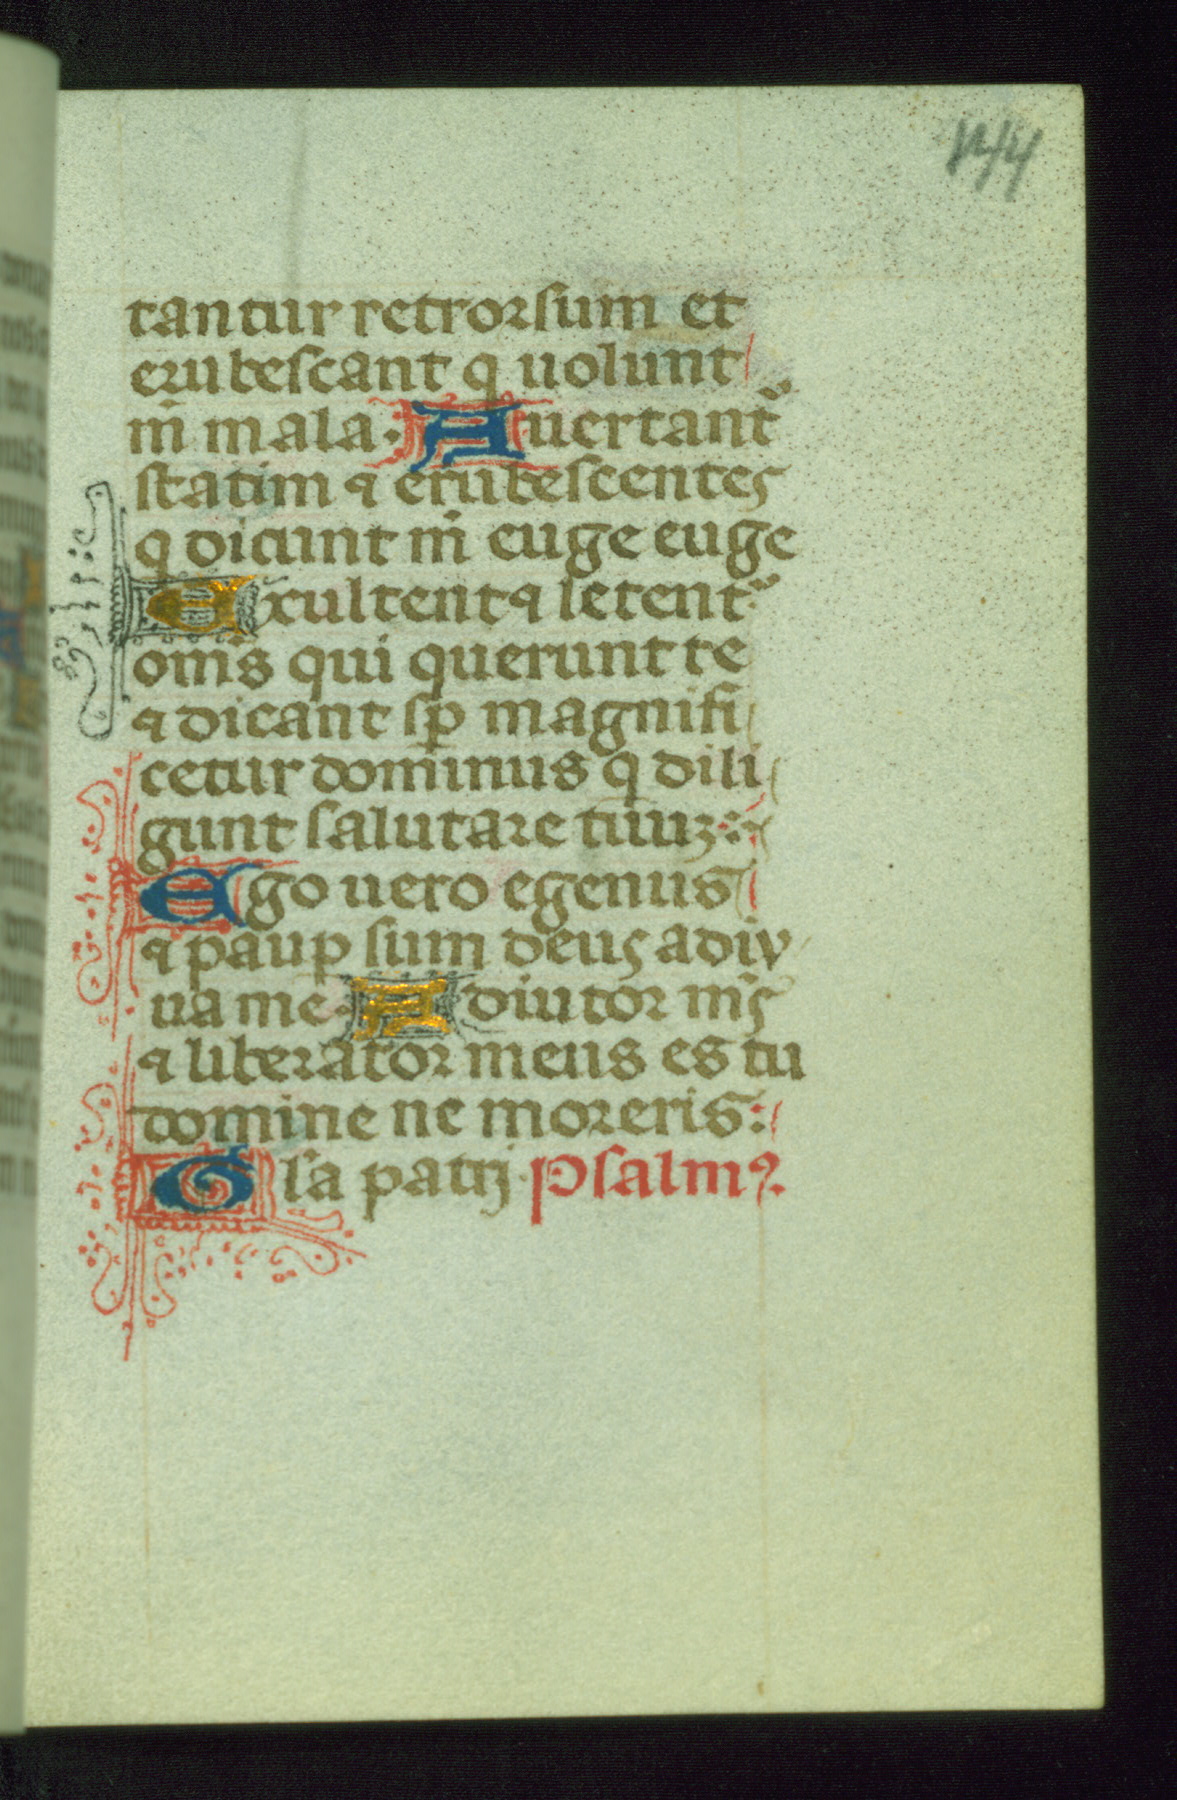 144
tantur retrorsum et
erubescant q uolunt
m̄ mala. Auertant᷑
statim ⁊ erubescentes
q dicunt m̄ euge euge
Exultent ⁊ letent᷑
om̄s qui querunt te
⁊ dicant sp̄ magnifi
cetur dominus q dili
gunt salutare tuuꝫ:
Ego uero egenus
⁊ paup̱ sum deus adiu
ua me. Adiutor m̄s
⁊ liberator meus es tu
domine ne moreris:
Gl̄a patrj. Psalmꝰ.